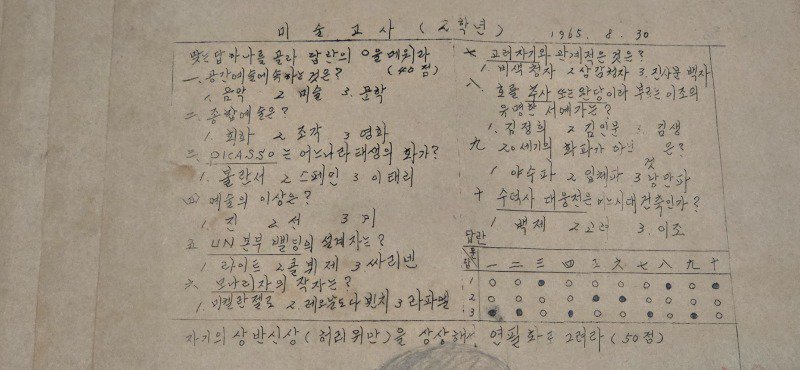 미술고사 (2학년) 1965. 8. 30
맞는 답 하나를 골라 답란의 O을 메워라
(40점)
一. 공간예술에 속하는 것은?
1. 음악 2 미술 3. 문학
二. 종합예술은?
1. 회화 2 조각 3 영화
三. PICASSO는 어느나라 태생의 화가?
1. 불란서 2 스페인 3 이태리
四 예술의 이상은?
1. 진 2 선 3 미
五 UN 본부 삘딩의 설계자는?
1 라이트 2 콜뷔제 3 싸리넨
六 모나리자의 작자는?
1. 미켈란젤로 2. 레오날도다빈치 3 라파엘
七 고려자기와 관계적은 것은?
1. 비색청자 2 상감청자 3. 진사문 백자
八 호를 추사 또는 완당이라 부르는 이조의
유명한 서예가는?
1. 김정희 2 김인문 3. 김생
九 20세기의 화파가 아닌 것은?
1 야수파 2 입체파 3 낭만파
十 수덕사 대웅전은 어느시대 건축인가?
1 백제 2 고려 3. 이조
답란
문 답 一 二 三 四 五 六 七 八 九 十
1
2
3
자기의 상반신상(허리위만)을 상상해서 연필화로 그려라 (50점)